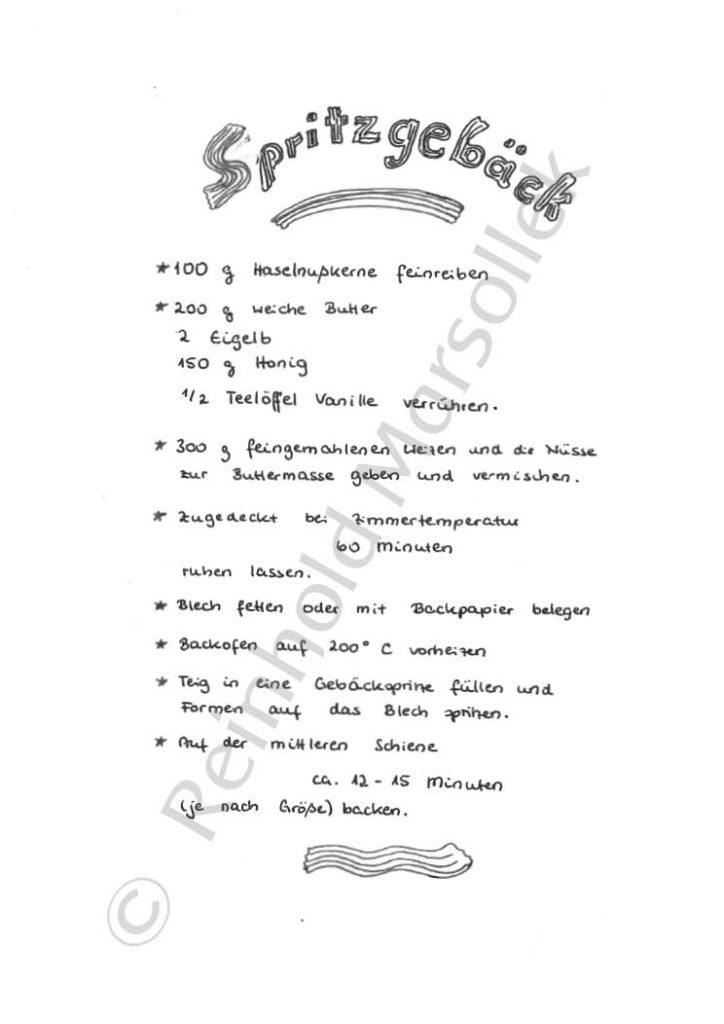 Spritzgebäck
* 100 g Haselnußkerne feinreiben
* 200 g weiche Butter
2 Eigelb
150 g Honig
1/2 Teelöffel Vanille verrühren.
* 300 g feingemahlenen Weizen und die Nüsse
zur Buttermasse geben und vermischen.
* Zugedeckt bei Zimmertemperatur
60 Minuten
ruhen lassen.
* Blech fetten oder mit Backpapier belegen
* Backofen auf 200° C vorheizen
* Teig in eine Gebäckspritze füllen und
Formen auf das Blech spritzen.
* Auf der mittleren Schiene
ca. 12 - 15 Minuten
(je nach Größe) backen.
© Reinhold Marsollek